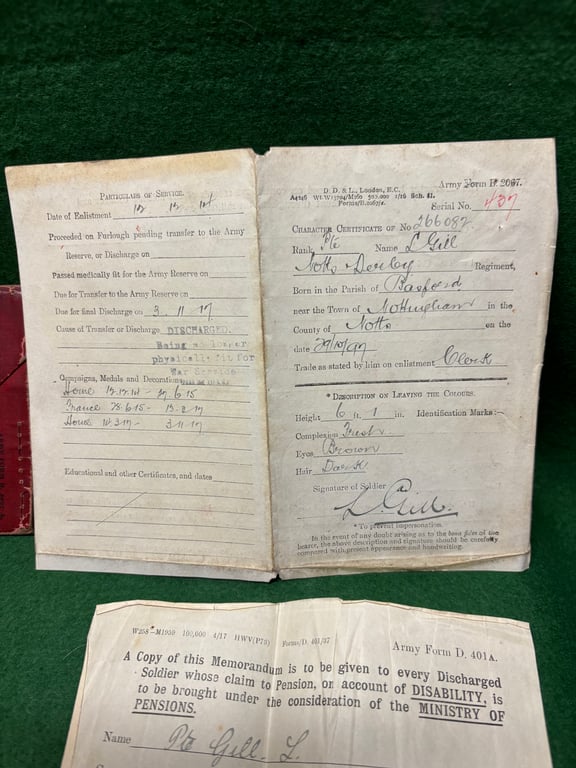 PARTICULARS OF SERVICE.
Date of Enlistment 12 12 14
Proceeded on Furlough pending transfer to the Army
Reserve, or Discharge on
Passed medically fit for the Army Reserve on
Due for Transfer to the Army Reserve on
Due for final Discharge on 3. 11. 17.
Cause of Transfer or Discharge DISCHARGED.
Being no longer
physically fit for
War Service
Campaigns, Medals and Decorations
Home 12.12.14 - 27.6.15
France 28.6.15 - 13.3.17
Home 14.3.17 - 3.11.17
Educational and other Certificates, and dates
D. D. & L., London, E.C.
Forms/B.2067/2.
Army Form B. 2067.
Serial No. 437
CHARACTER CERTIFICATE OF No 266082
Rank Pte Name L Gill
Notts & Derby Regiment,
Born in the Parish of Basford
near the Town of Nottingham in the
County of Notts on the
date 29/10/97
Trade as stated by him on enlistment Clerk
* DESCRIPTION ON LEAVING THE COLOURS.
Height 6 ft. 1 in. Identification Marks:—
Complexion Fresh
Eyes Brown
Hair Dark
Signature of Soldier
L. Gill.
* To prevent impersonation.
In the event of any doubt arising as to the bona fides of the
bearer, the above description and signature should be carefully
compared with present appearance and handwriting.
W258—M1950 100,000 4/17 HWV(P75) Forms/D. 401/37
Army Form D. 401A.
A Copy of this Memorandum is to be given to every Discharged
Soldier whose claim to Pension, on account of DISABILITY, is
to be brought under the consideration of the MINISTRY OF
PENSIONS.
Name Pte Gill. L.